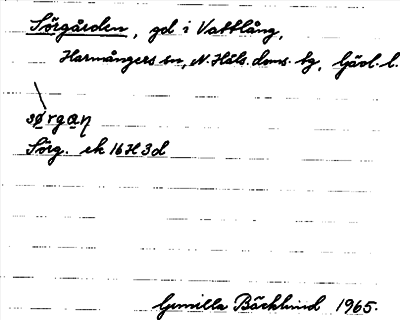 Sörgården, gd i Vattlång,
Harmångers sn, N. Häls. doms. tg, Gävl. l.
sørgaɳ
Sörg. ek 16H 3d
Gunilla Bäcklund 1965.